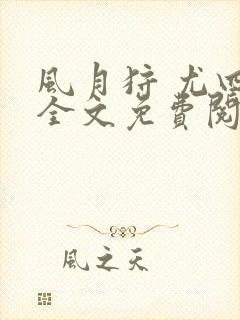 風月狩 尤四
全文免費閱
風之天